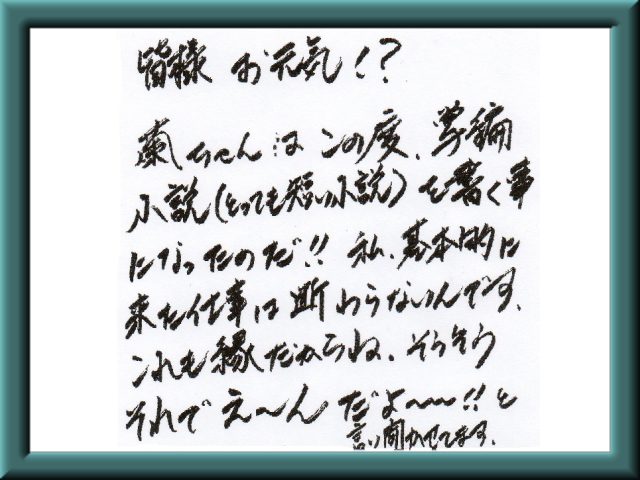 皆様 お元気!?
蘭ちゃんはこの度、掌編
小説(とっても短い小説)を書く事
になったのだ!! 私、基本的に
来た仕事は断わらないんです、
これも縁だからね、そうそう
それでえ〜ん だよ〜〜!!と
言い聞かせてます、